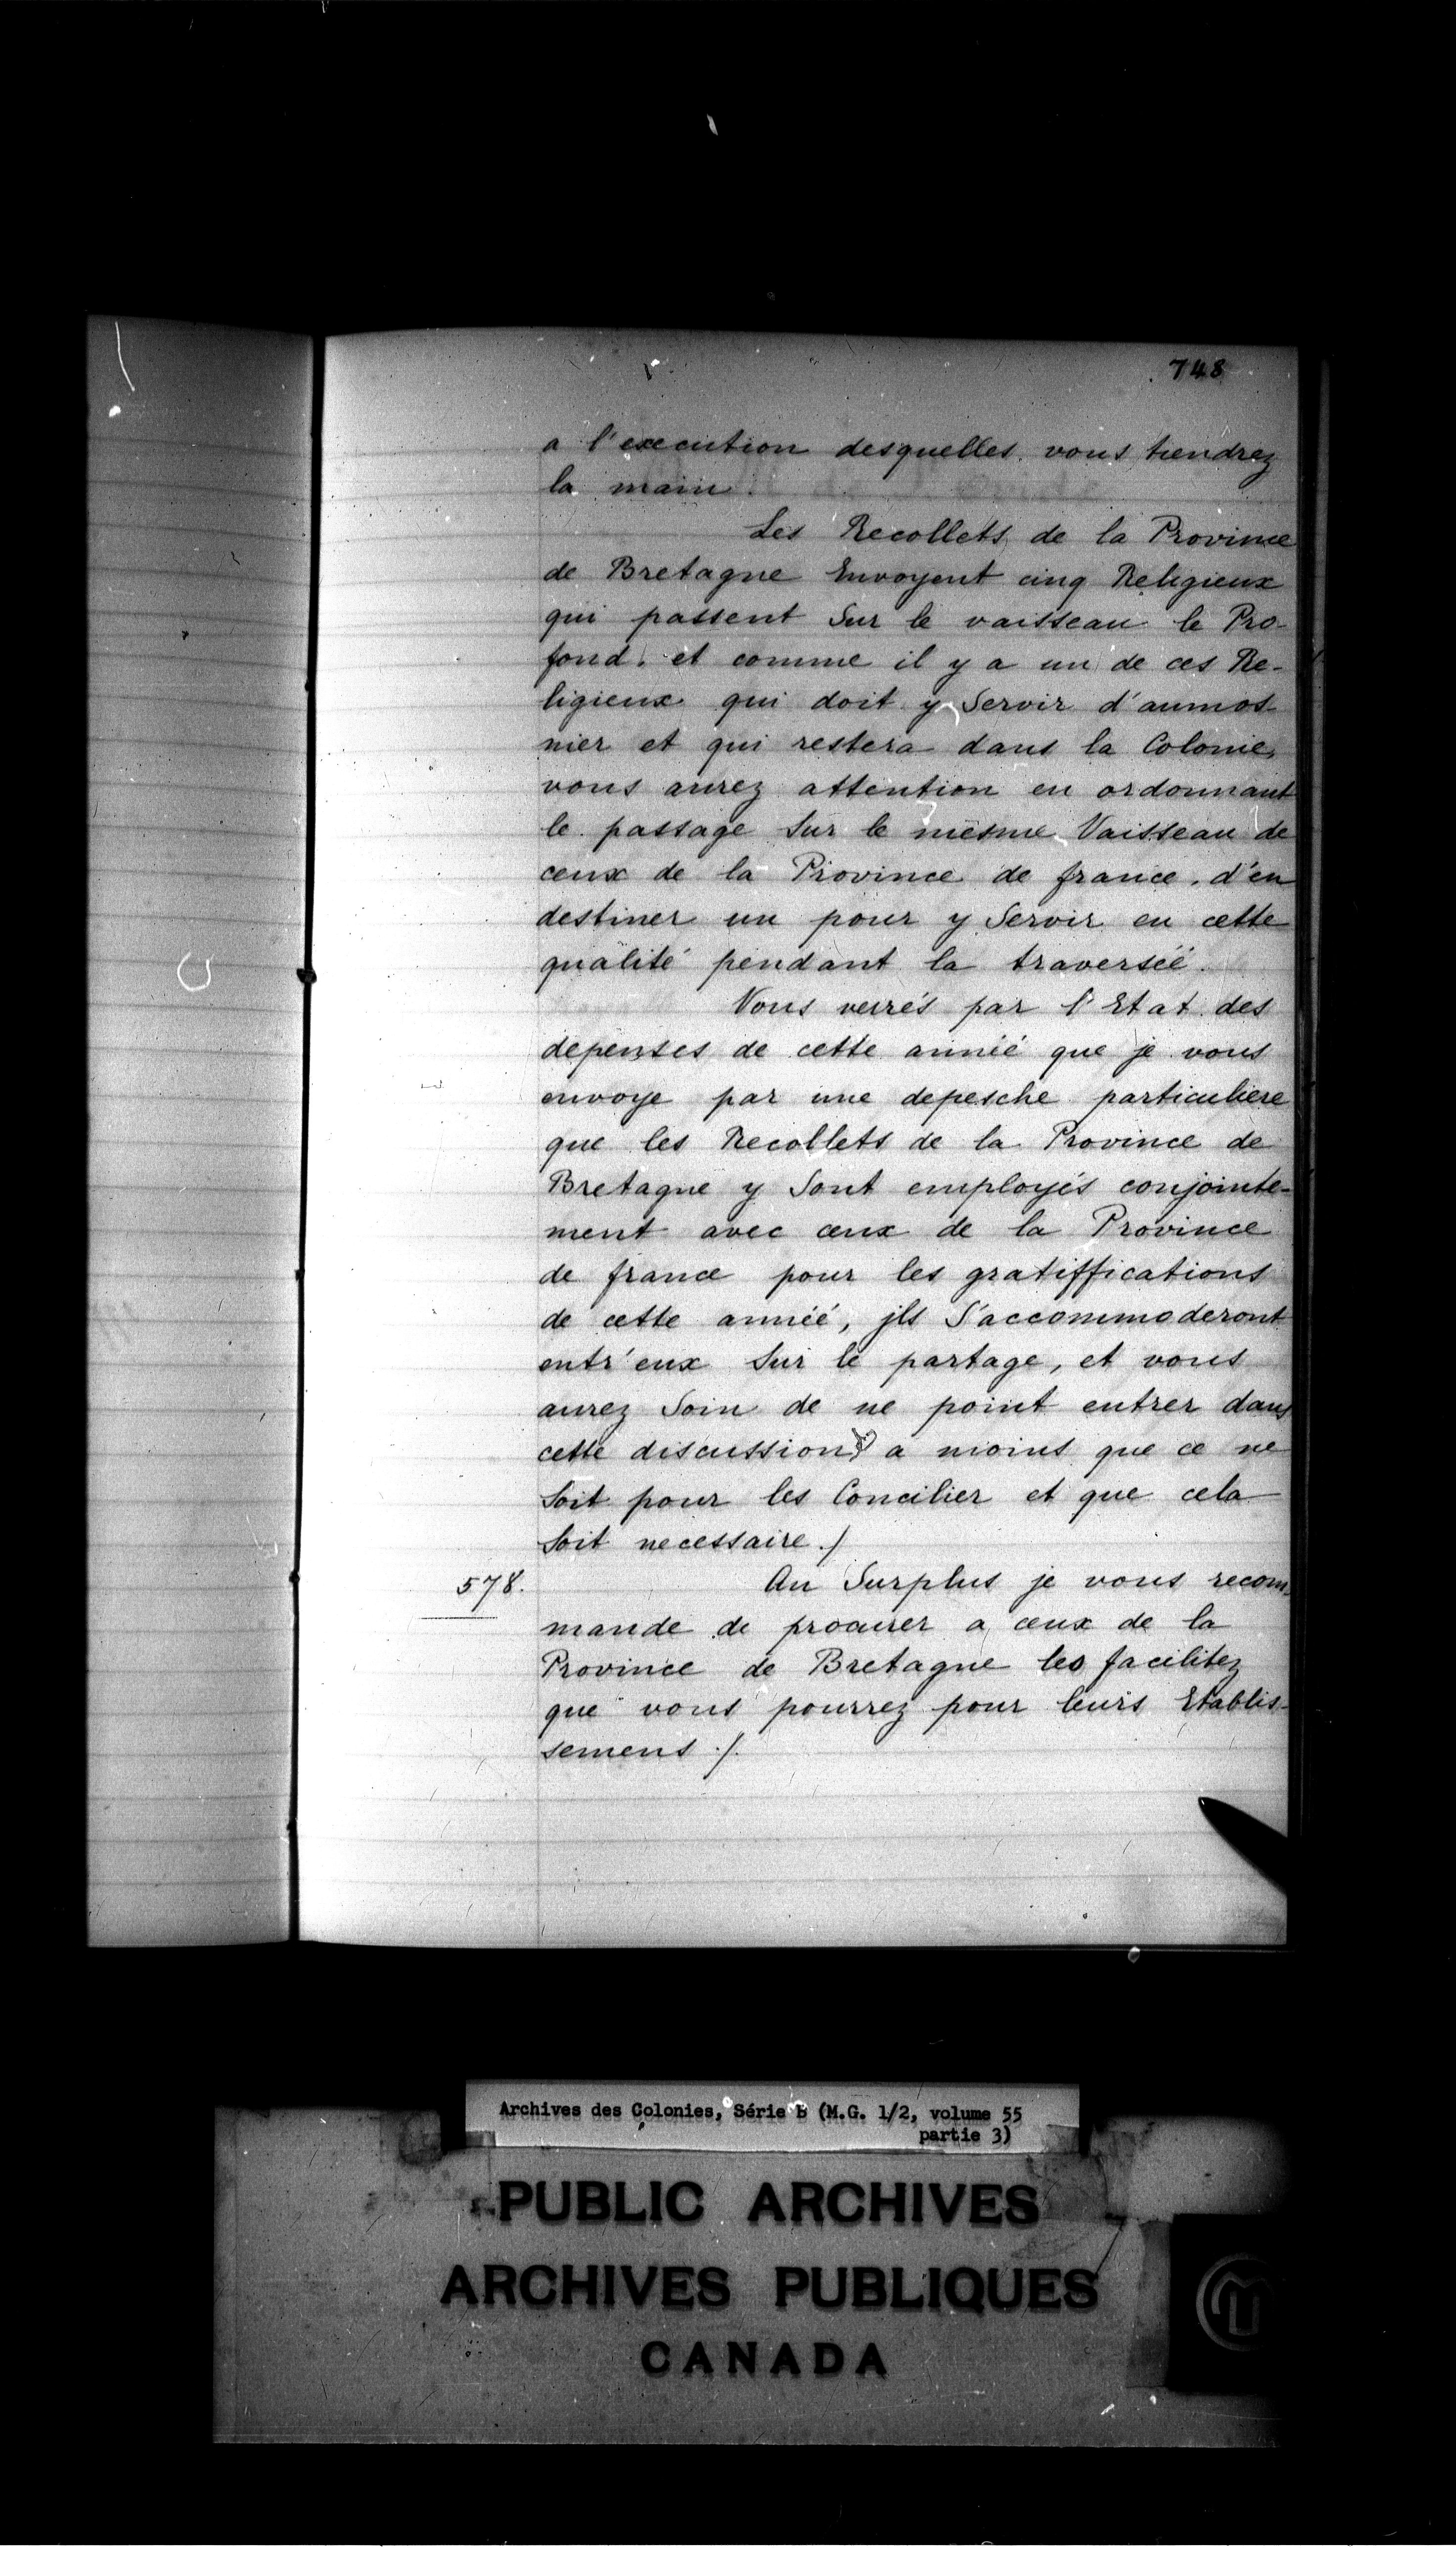 748
a l'execution desquelles vous tiendrez
la main.
Les Recollets de la Province
de Bretagne Envoyent cinq Religieux
qui passent Sur le vaisseau le Pro-
fond. et comme il y a un de ces Re-
ligieux qui doit y Servir d'aumos-
nier et qui restera dans la Colonie,
vous aurez attention en ordonnant
le passage Sur le mesme Vaisseau de
ceux de la Province de france, d'en
destiner un pour y Servir en cette
qualité pendant la traverséé.
Vous verrés par l'Etat des
depenses de cette annéé que je vous
envoye par une depesche particuliere
que les Recollets de la Province de
Bretagne y Sont employés conjointe-
ment avec ceux de la Province
de france pour les gratiffications
de cette annéé, jls S'accommoderont
entr'eux Sur le partage, et vous
aurez Soin de ne point entrer dans
cette discussion a moins que ce ne
Soit pour les Concilier et que cela
Soit necessaire ./
578.
Au Surplus je vous recom-
mande de procurer a ceux de la
Province de Bretagne les facilitez
que vous pourrez pour leurs Etablis-
semens ./.
Archives des Colonies, Série B (M.G. 1/2, volume 55
partie 3)
PUBLIC ARCHIVES
ARCHIVES PUBLIQUES
CANADA